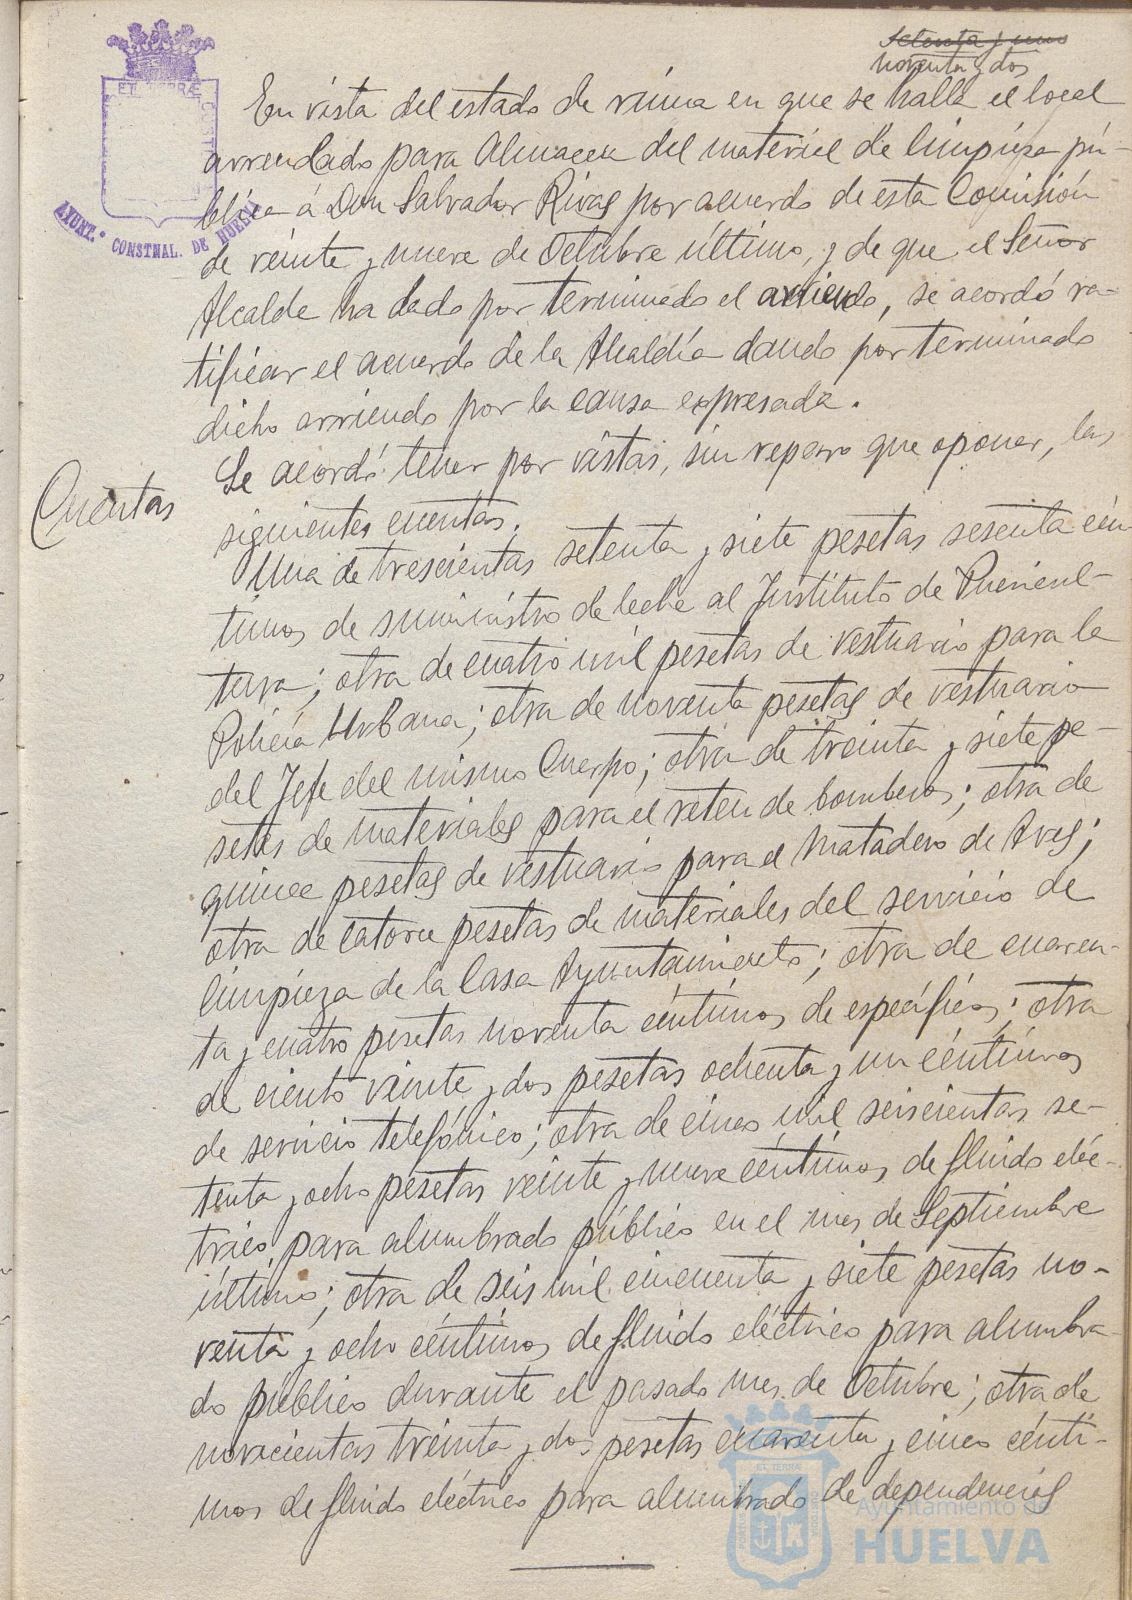 setenta y uno
noventa y dos
ET TERRÆ CUSTODIA
AYUNT.º CONSTNAL. DE HUELVA
En vista del estado de ruina en que se halla el local
arrendado para Almacen del material de limpieza pú-
blica á Don Salvador Rivas por acuerdo de esta Comisión
de veinte y nueve de Octubre último, y de que el Señor
Alcalde ha dado por terminado el arriendo, se acordó ra-
tificar el acuerdo de la Alcaldía dando por terminado
dicho arriendo por la causa expresada.
Cuentas
Se acordó tener por vistas, sin reparo que oponer, las
siguientes cuentas.
Una de trescientas setenta y siete pesetas sesenta cén-
timos de suministro de leche al Instituto de Puericul-
tura; otra de cuatro mil pesetas de vestuario para la
Policía Urbana; otra de noventa pesetas de vestuario
del Jefe del mismo Cuerpo; otra de treinta y siete pe-
setas de materiales para el reten de bomberos; otra de
quince pesetas de vestuario para el Matadero de Aves;
otra de catorce pesetas de materiales del servicio de
limpieza de la Casa Ayuntamiento; otra de cuaren-
ta y cuatro pesetas noventa céntimos de específicos; otra
de ciento veinte y dos pesetas ochenta y un céntimos
de servicio telefónico; otra de cinco mil seiscientas se-
tenta y ocho pesetas veinte y nueve céntimos de fluido eléc-
trico para alumbrado público en el mes de Septiembre
último; otra de seis mil cincuenta y siete pesetas no-
venta y ocho céntimos de fluido eléctrico para alumbra-
do público durante el pasado mes de Octubre; otra de
novecientas treinta y dos pesetas cuarenta y cinco cénti-
mos de fluido eléctrico para alumbrado de dependencias
ET TERRÆ
Ayuntamiento de
HUELVA